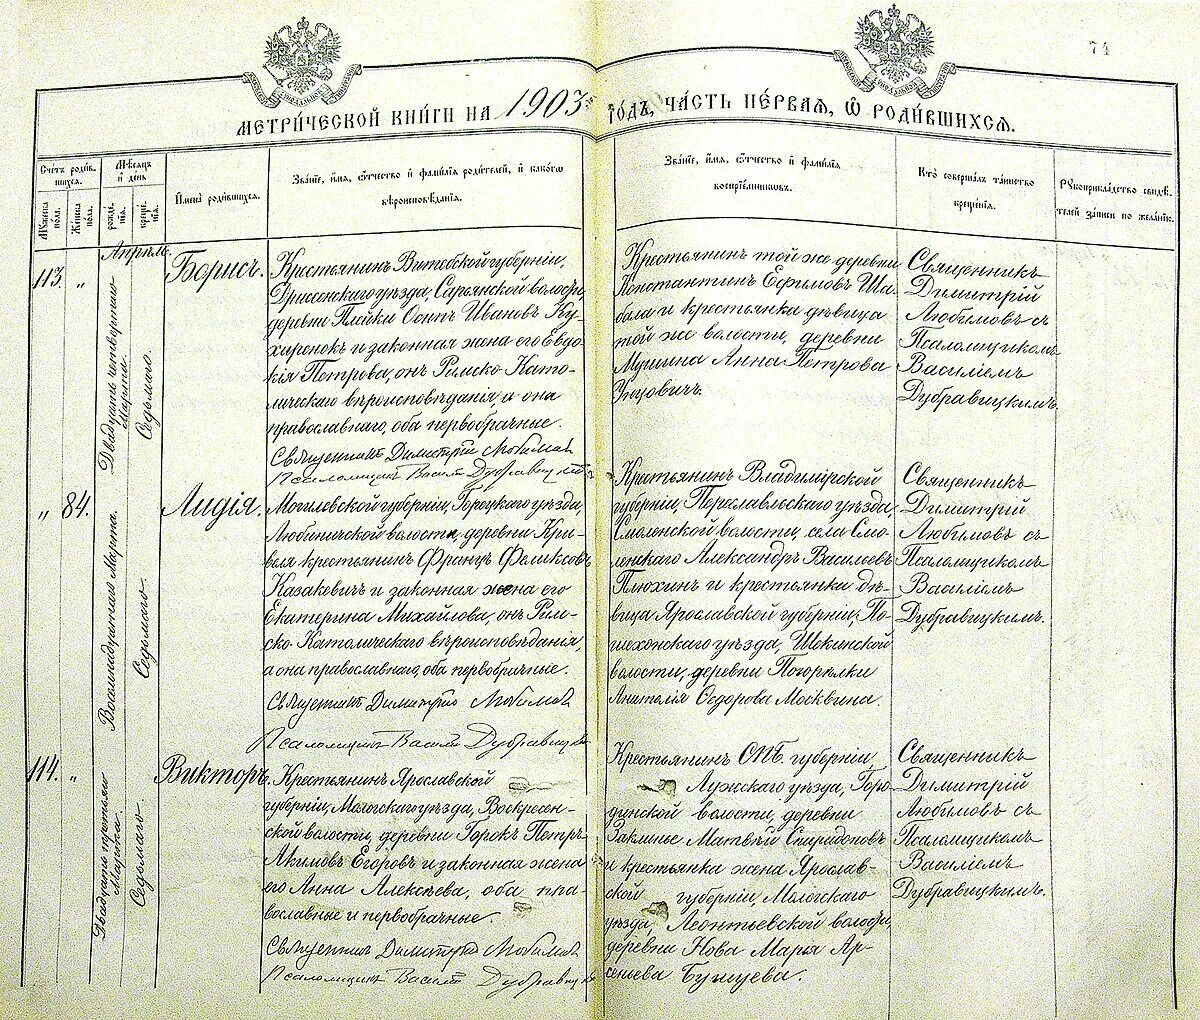 74
МЕТРИ́ЧЕСКОЙ КНИ́ГИ НА 1903й ГО́ДЪ, ЧА́СТЬ ПЕ́РВАЯ, Ѡ РОДИ́ВШИХСЯ.
Сче́тъ роди́в-
шихся.
Му́жеска по́ла.
Же́нска по́ла.
Мѣ́сяцъ и де́нь
рожде́нія.
креще́нія.
Имена̀ роди́вшихся.
Зва́ніе, и́мя, о́тчество и фами́лія роди́телей, и како́гѡ
вѣроисповѣ́данія.
Зва́ніе, и́мя, о́тчество и фами́лія
воспріе́мниковъ.
Кто̀ соверша́лъ та́инство
креще́нія.
Рукоприкла́дство свидѣ́-
телей за́писи по жела́нію.
Апрѣль.
113.
„
Двадцать четвертаго
Марта.
Седьмого.
Борисъ.
Крестьянинъ Витебской губерніи,
Дриссенскаго уѣзда, Сарьянской волости,
деревни Плейки Осипъ Ивановъ Ку-
харенокъ и законная жена его Евдо-
кія Петрова, онъ Римско Като-
лическаго вѣроисповѣданія, а она
православнаго, оба первобрачные.
Священникъ Димитрій Любимовъ
Псаломщикъ Василій Дубравицкій
Крестьянинъ той же деревни
Константинъ Ефимовъ Ша-
бала и крестьянка дѣвица
той же волости, деревни
Анна Петрова
Священникъ
Димитрій
Любимовъ съ
Псаломщикомъ
Василіемъ
Дубравицкимъ.
„
84.
Восемнадцатаго Марта.
Седьмого
Лидія.
Могилевской губерніи, Горецкаго уѣзда,
Любиничской волости, деревни Кри-
веля крестьянинъ Францъ Феликсовъ
Казакевичъ и законная жена его
Екатерина Михайлова, онъ Рим-
ско-Католическаго вѣроисповѣданія,
а она православнаго, оба первобрачные.
Священникъ Димитрій Любимовъ
Псаломщикъ Василій Дубравицкій
Крестьянинъ Владимірской
губерніи, Переславльскаго уѣзда,
Смоленской волости, села Смо-
ленскаго Александръ Васильевъ
Плюхинъ и крестьянка дѣ-
вица Ярославской губерніи, По-
шехонскаго уѣзда, Щекинской
волости, деревни Погорѣлки
Анатолія Ѳедорова Москвина.
Священникъ
Димитрій
Любимовъ съ
Псаломщикомъ
Василіемъ
Дубравицкимъ.
114.
„
Двадцать третьяго
Марта.
Седьмого.
Викторъ.
Крестьянинъ Ярославской
губерніи, Мологскаго уѣзда, Воскресен-
ской волости, деревни Горокъ Петръ
Акимовъ Егоровъ и законная жена
его Анна Алексѣева, оба пра-
вославные и первобрачные.
Священникъ Димитрій Любимовъ
Псаломщикъ Василій Дубравицкій
Крестьянинъ СПБ. губерніи,
Лужскаго уѣзда, Горо-
динской волости, деревни
Заклинье Матвѣй Спиридоновъ
и крестьянка жена Ярослав-
ской губерніи, Мологскаго
уѣзда, Леонтьевской волости,
деревни Нова Марья Ар-
сеньева
Священникъ
Димитрій
Любимовъ съ
Псаломщикомъ
Василіемъ
Дубравицкимъ.